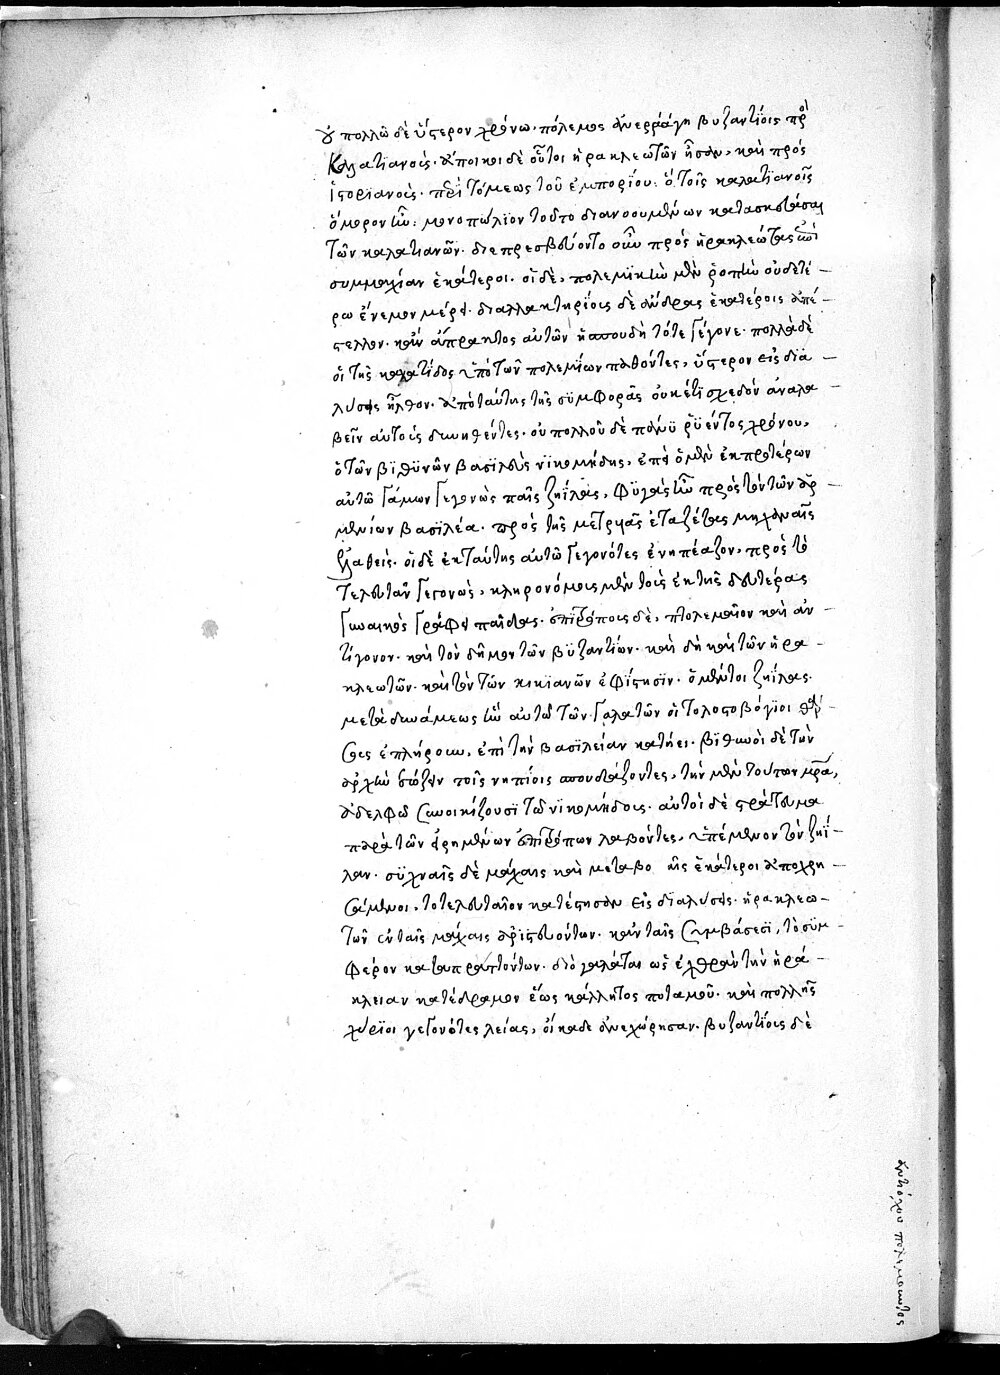 οὐ πολλῶ δὲ ὕστερον χρόνω. πόλεμος ἀνερράγη βυζαντίοις πρὸς
Καλατιανοὺς. ἄποικοι δὲ οὗτοι ἡρακλεωτῶν ἦσαν, καὶ πρὸς
ἰστοριανοὺς. περὶ τόμεως τοῦ ἐμπορίου: ὃ τοῖς καλατιανοῖς
ὅμορον ἦν: μονοπώλιον τοῦτο διανοουμένων κατασκευάσαι
τῶν καλατιανῶν. διεπρεσβεύοντο οὖν πρὸς ἡρακλεώτας ἐπὶ
συμμαχίαν ἑκάτεροι. οἱ δὲ, πολεμικὴν μὲν ῥοπὴν οὐδετέ
ρω ἔνεμον μέρει. διαλλακτηρίους δὲ ἄνδρας ἑκατέροις ἀπέ
στελλον. κἂν ἄπρακτος αὐτῶν ἡ σπουδὴ τότε γέγονε. πολλὰ δὲ
οἱ τῆς καλάτιδος ὑπὸ τῶν πολεμίων παθόντες, ὕστερον εἰς διὰ
λύσεις ἦλθον. ἀπὸ ταύτης τῆς συμφορᾶς οὐκέτι σχεδὸν ἀναλα
βεῖν αὑτοὺς δυνηθέντες. οὐ πολλοῦ δὲ πάνυ ῥυέντος χρόνου,
ὁ τῶν βιθυνῶν βασιλεὺς νικομήδης, ἐπεὶ ὁ μὲν ἐκ προτέρων
αὐτῶ γάμων γεγονὼς παῖς ζηΐλας, φυγὰς ἦν πρὸς τὸν τῶν ἀρ
μενίων βασιλέα. πρὸς τῆς μητρυιᾶς ἐταζέτας μηχαναῖς
ἐλαθεὶς. οἱ δὲ ἐκ ταύτης αὐτῶ γεγονότες ἐνηπίαζον, πρὸς τὸ
τελευτᾶν γεγονὼς, κληρονόμους μὲν τοὺς ἐκ τῆς δευτέρας
γυναικὸς γράφει παῖδας. ἐπιτρόπους δὲ, πτολεμαῖον καὶ ἀν
τίγονον. καὶ τὸν δῆμον τῶν βυζαντίων. καὶ δὴ καὶ τῶν ἡρα
κλεωτῶν. καὶ τὸν τῶν κικιανῶν ἐφίστησιν. ὁ μέντοι ζηΐλας.
μετὰ δυνάμεως ἣν αὐτῶ τῶν γαλατῶν οἱ τολοστοβόγιοι θάρ
σους ἐπλήρουν, ἐπὶ τὴν βασιλείαν κατήει. βιθυνοὶ δὲ τὴν
ἀρχὴν σώζειν τοῖς νηπίοις σπουδάζοντες, τὴν μὲν τούτων μρα,
ἀδελφῶ συνοικίζουσι τῶ νικομήδους. αὐτοὶ δὲ στράτευμα
παρὰ τῶν εἰρημένων ἐπιτρόπων λαβόντες, ὑπέμενον τὸν ζηΐ
λαν. συχναῖς δὲ μάχαις καὶ μεταβο αῖς ἑκάτεροι ἀποχρη
σάμενοι, τὸ τελευταῖον κατέστησαν εἰς διαλύσεις. ἡρακλεω
τῶν ἐν ταῖς μάχαις ἀριστευόντων. κἀν ταῖς συμβάσεσι, τὸ συμ
φέρον καταπραττόντων. διὸ γαλάται ὡς ἐχθρὰν τὴν ἡρά
κλειαν κατέδραμον ἕως κάλλητος ποταμοῦ. καὶ πολλῆς
κύριοι γεγονότες λείας, οἴκαδε ἀνεχώρησαν. βυζαντίοις δὲ
ἀντιόχου πολεμοῦντος